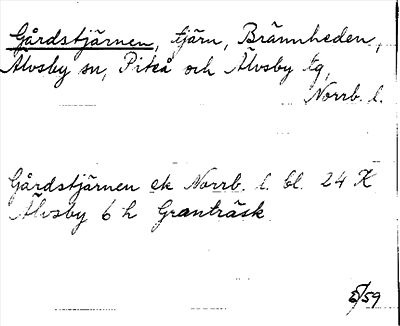 Gårdstjärnen, tjärn, Brännheden,
Älvsby sn, Piteå och Älvsby tg,
Norrb. l.
Gårdstjärnen ek Norrb. l. bl. 24 K
Älvsby 6 h Granträsk
/59